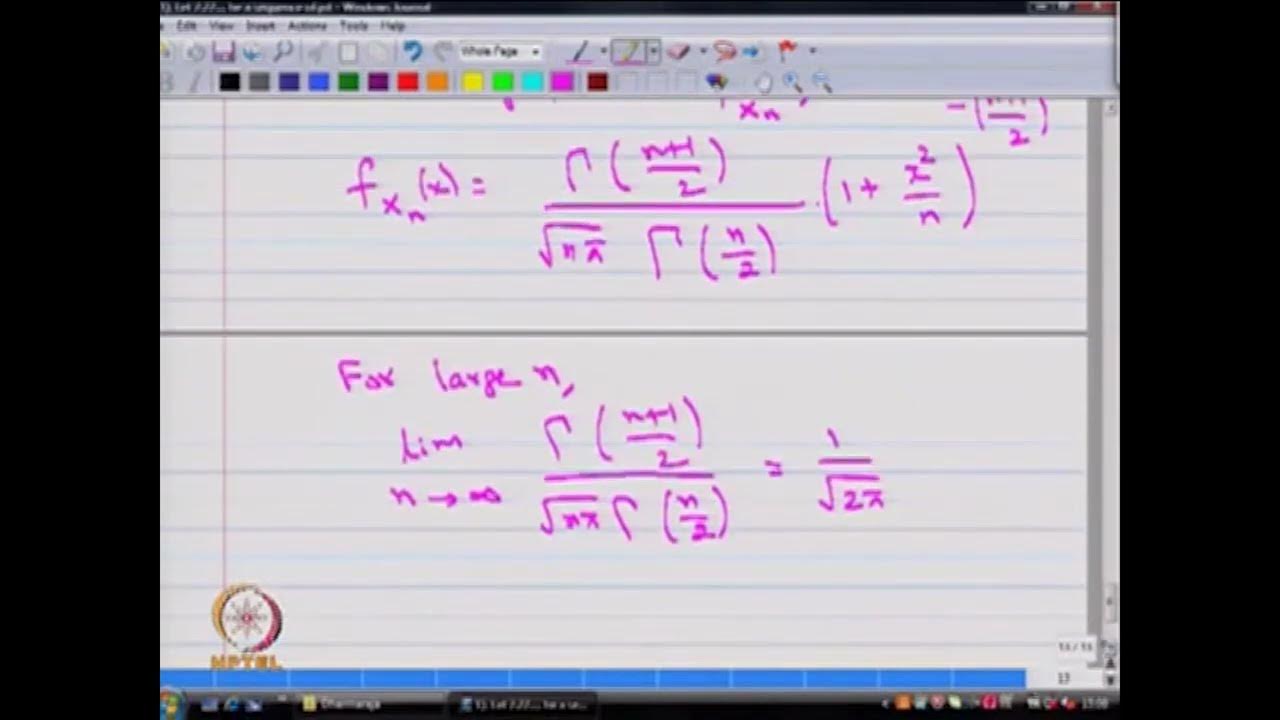 Edit View Insert Actions Tools Help
Whole Page
x_n
-(n+1/2)
f_{x_n}(x) = Γ((n+1)/2) / (√(nπ) Γ(n/2)) . (1 + x²/n)
For large n,
lim n→∞ Γ((n+1)/2) / (√(nπ) Γ(n/2)) = 1/√(2π)
NPTEL
13